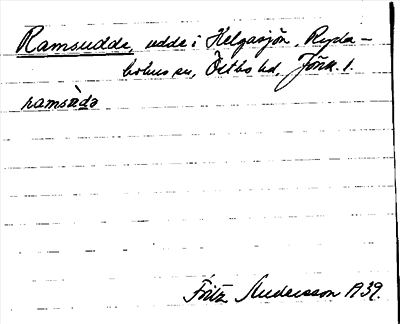 Ramsudde, udde i Helgasjön, Ryda-
holms sn, Östbo hd, Jönk. l.
ramsùdə
Fritz Andersson 1939.